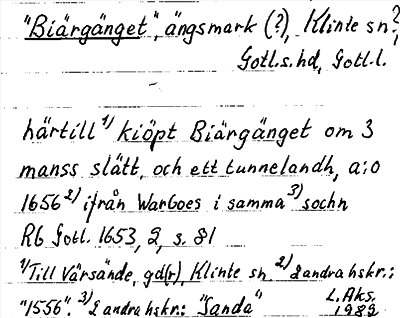 "Biärgänget", ängsmark (?), Klinte sn?,
Gotl.s.hd, Gotl.l.
härtill 1) kiöpt Biärgänget om 3
manss slätt, och ett tunnelandh, a:o
1656 2) ifrån Warboes i samma 3) sochn
Rb Gotl. 1653, 2, s. 81
1) Till Värsände, gd(r), Klinte sn 2) Landrahskr.:
"1556". 3) Landrahskr.: "Sanda"
L. Aks.
1989